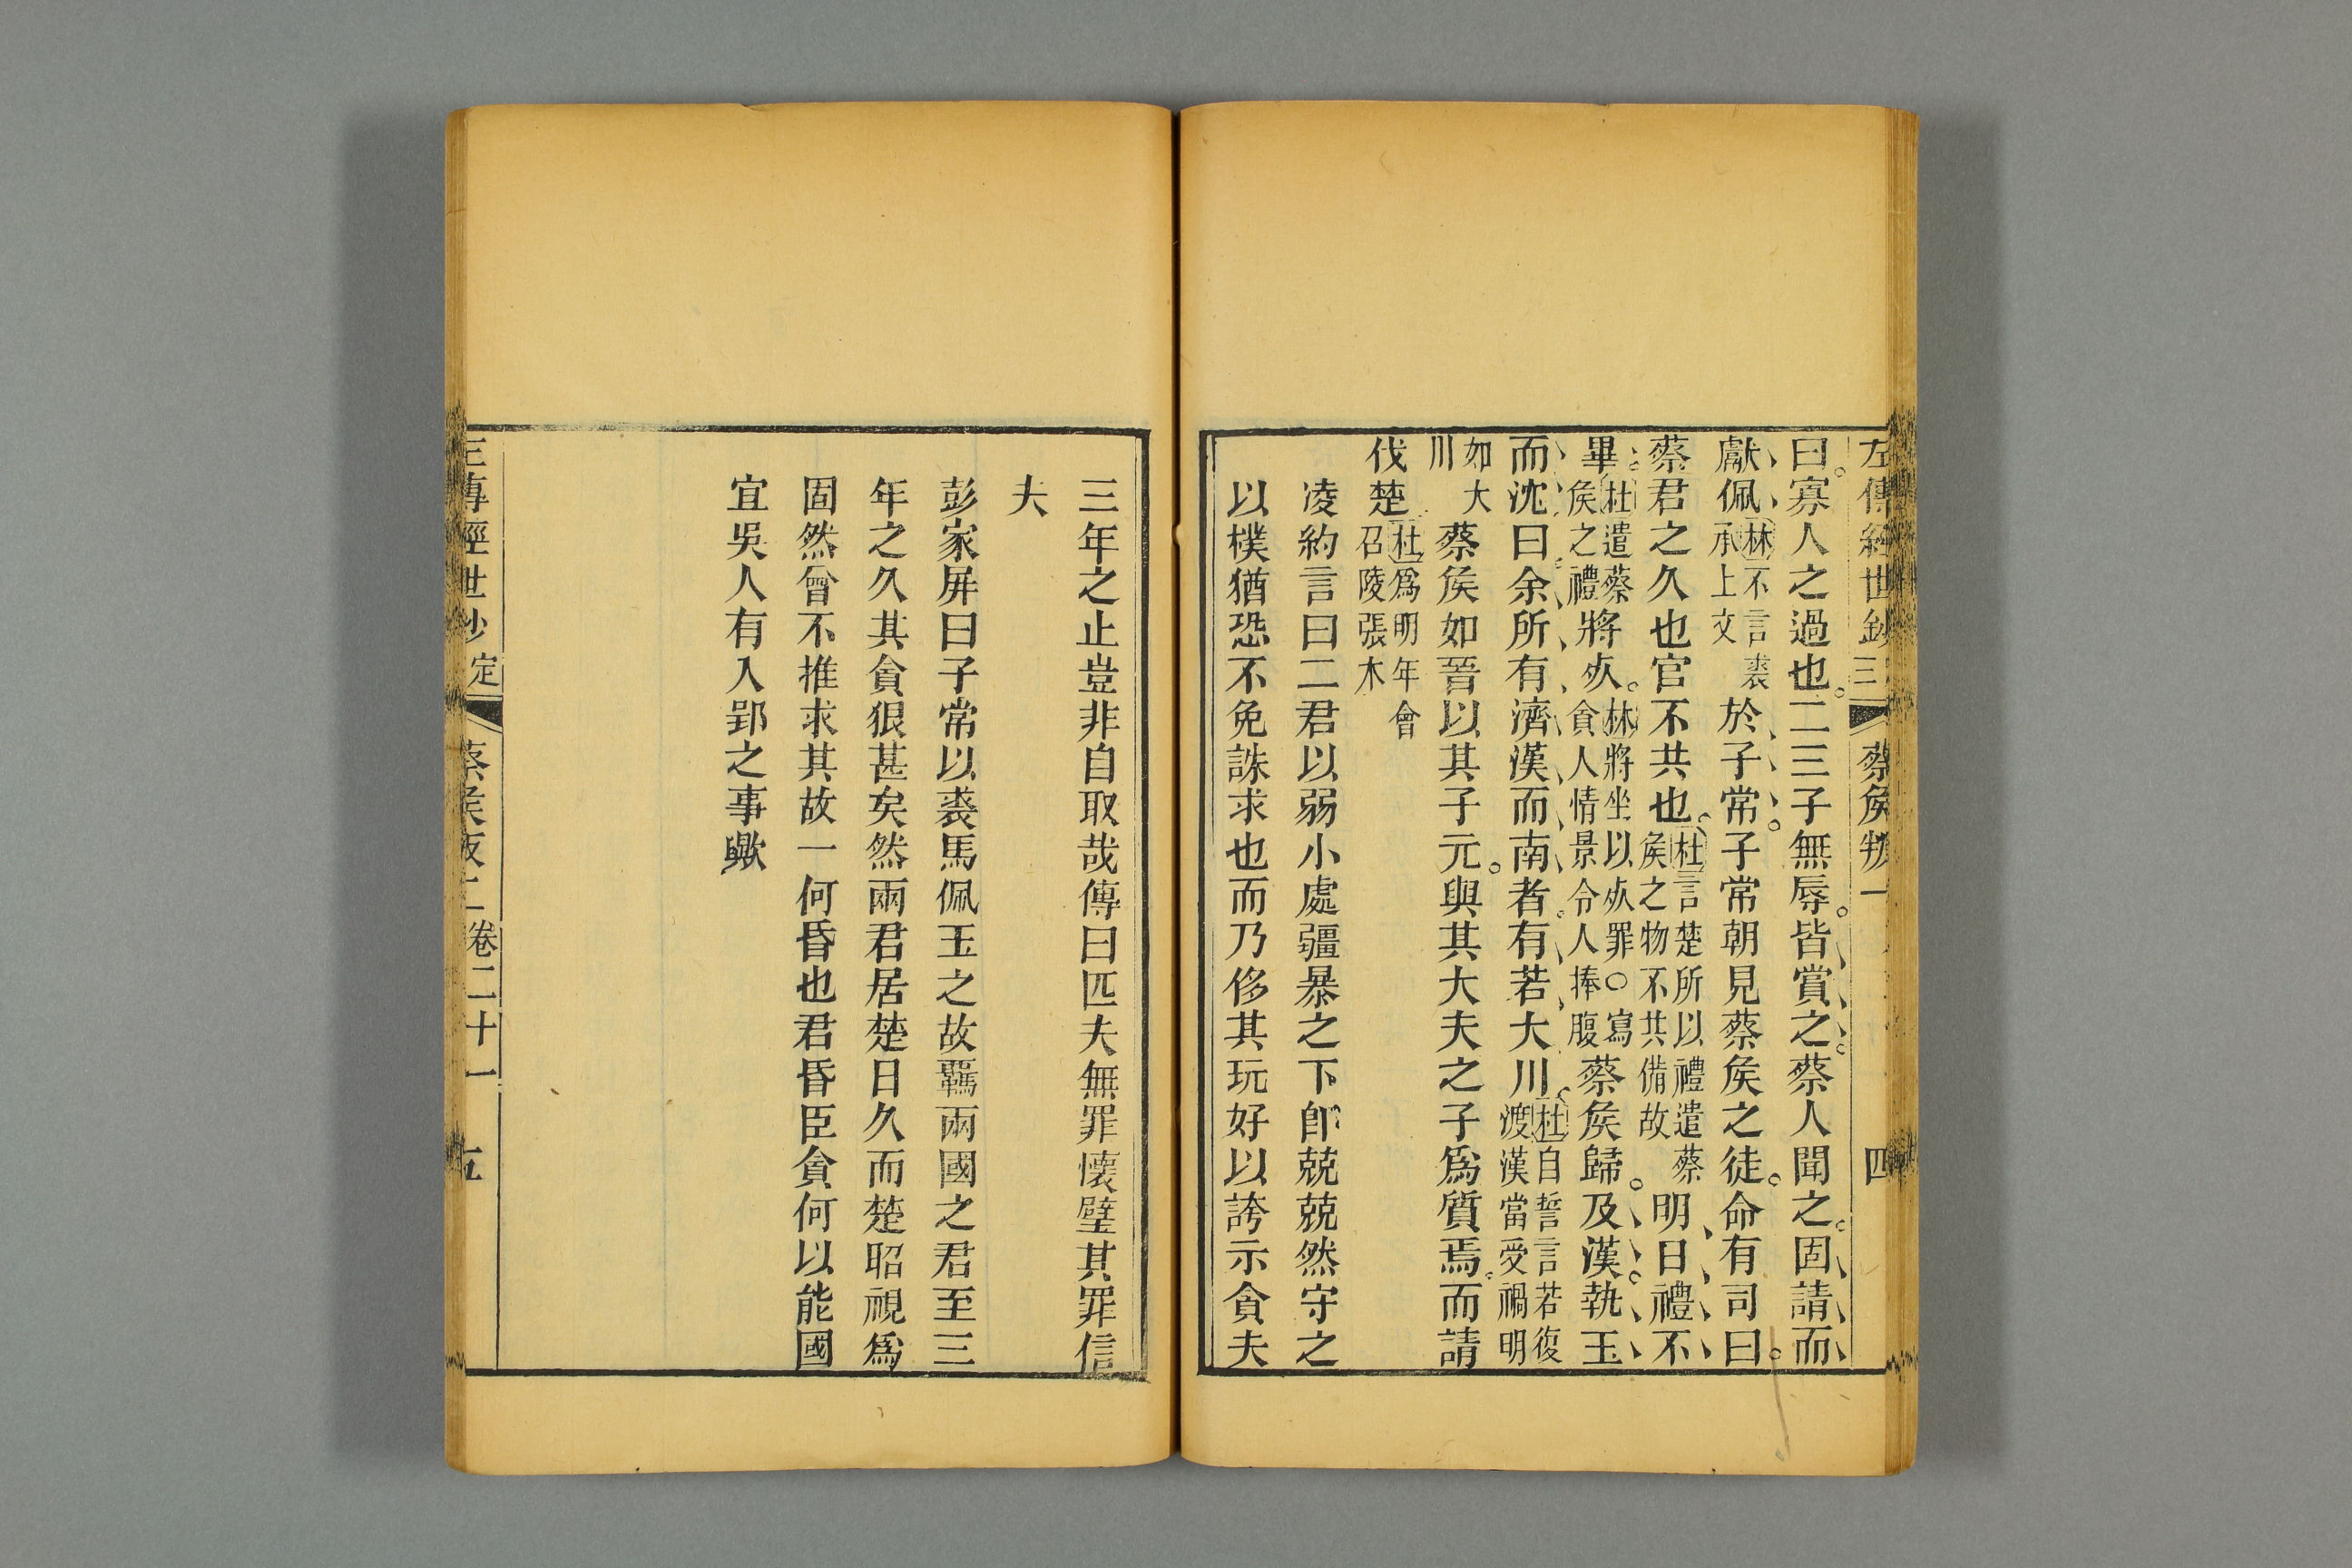 左傳經世鈔 定三 蔡矦叛一 四
曰寡人之過也二三子無辱皆賞之蔡人聞之固請而
獻佩林不言裘承上文於子常子常朝見蔡矦之徒命有司曰
蔡君之久也官不共也杜言楚所以禮遣蔡矦之物不共備故明日禮不
畢杜遣蔡矦之禮將㱙林將坐以㱙罪○寫貪人情景令人捧腹蔡矦歸及漢執玉
而沈曰余所有濟漢而南者有若大川杜自誓言若復渡漢當受禍明
如大川蔡矦如晉以其子元與其大夫之子爲質焉而請
伐楚杜爲明年會召陵張木
凌約言曰二君以弱小處疆暴之下卽兢兢然守之
以樸猶恐不免誅求也而乃侈其玩好以誇示貪夫
三年之止豈非自取哉傳曰匹夫無罪懷璧其罪信
夫
彭家屛曰子常以裘馬佩玉之故羈兩國之君至三
年之久其貪狠甚矣然兩君居楚日久而楚昭視爲
固然曾不推求其故一何昏也君昏臣貪何以能國
宜吳人有入郢之事歟
左傳經世鈔 定 蔡矦叛二 卷二十一 五